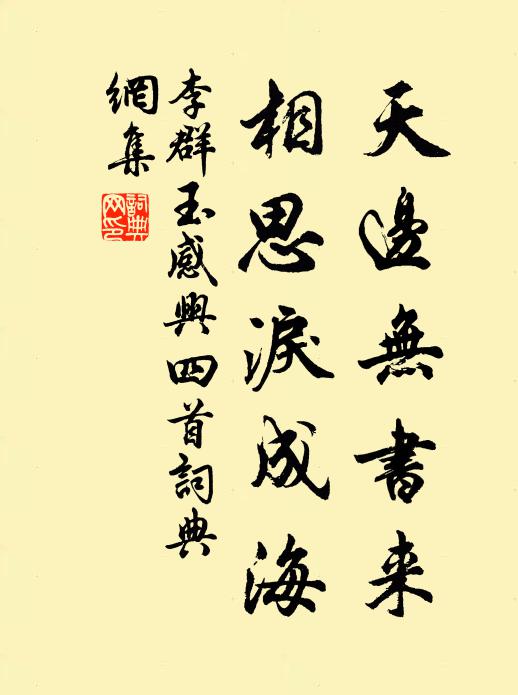 天邊無書来
相思淚成海
李群玉感興四首詞典
網集
詞典
网印